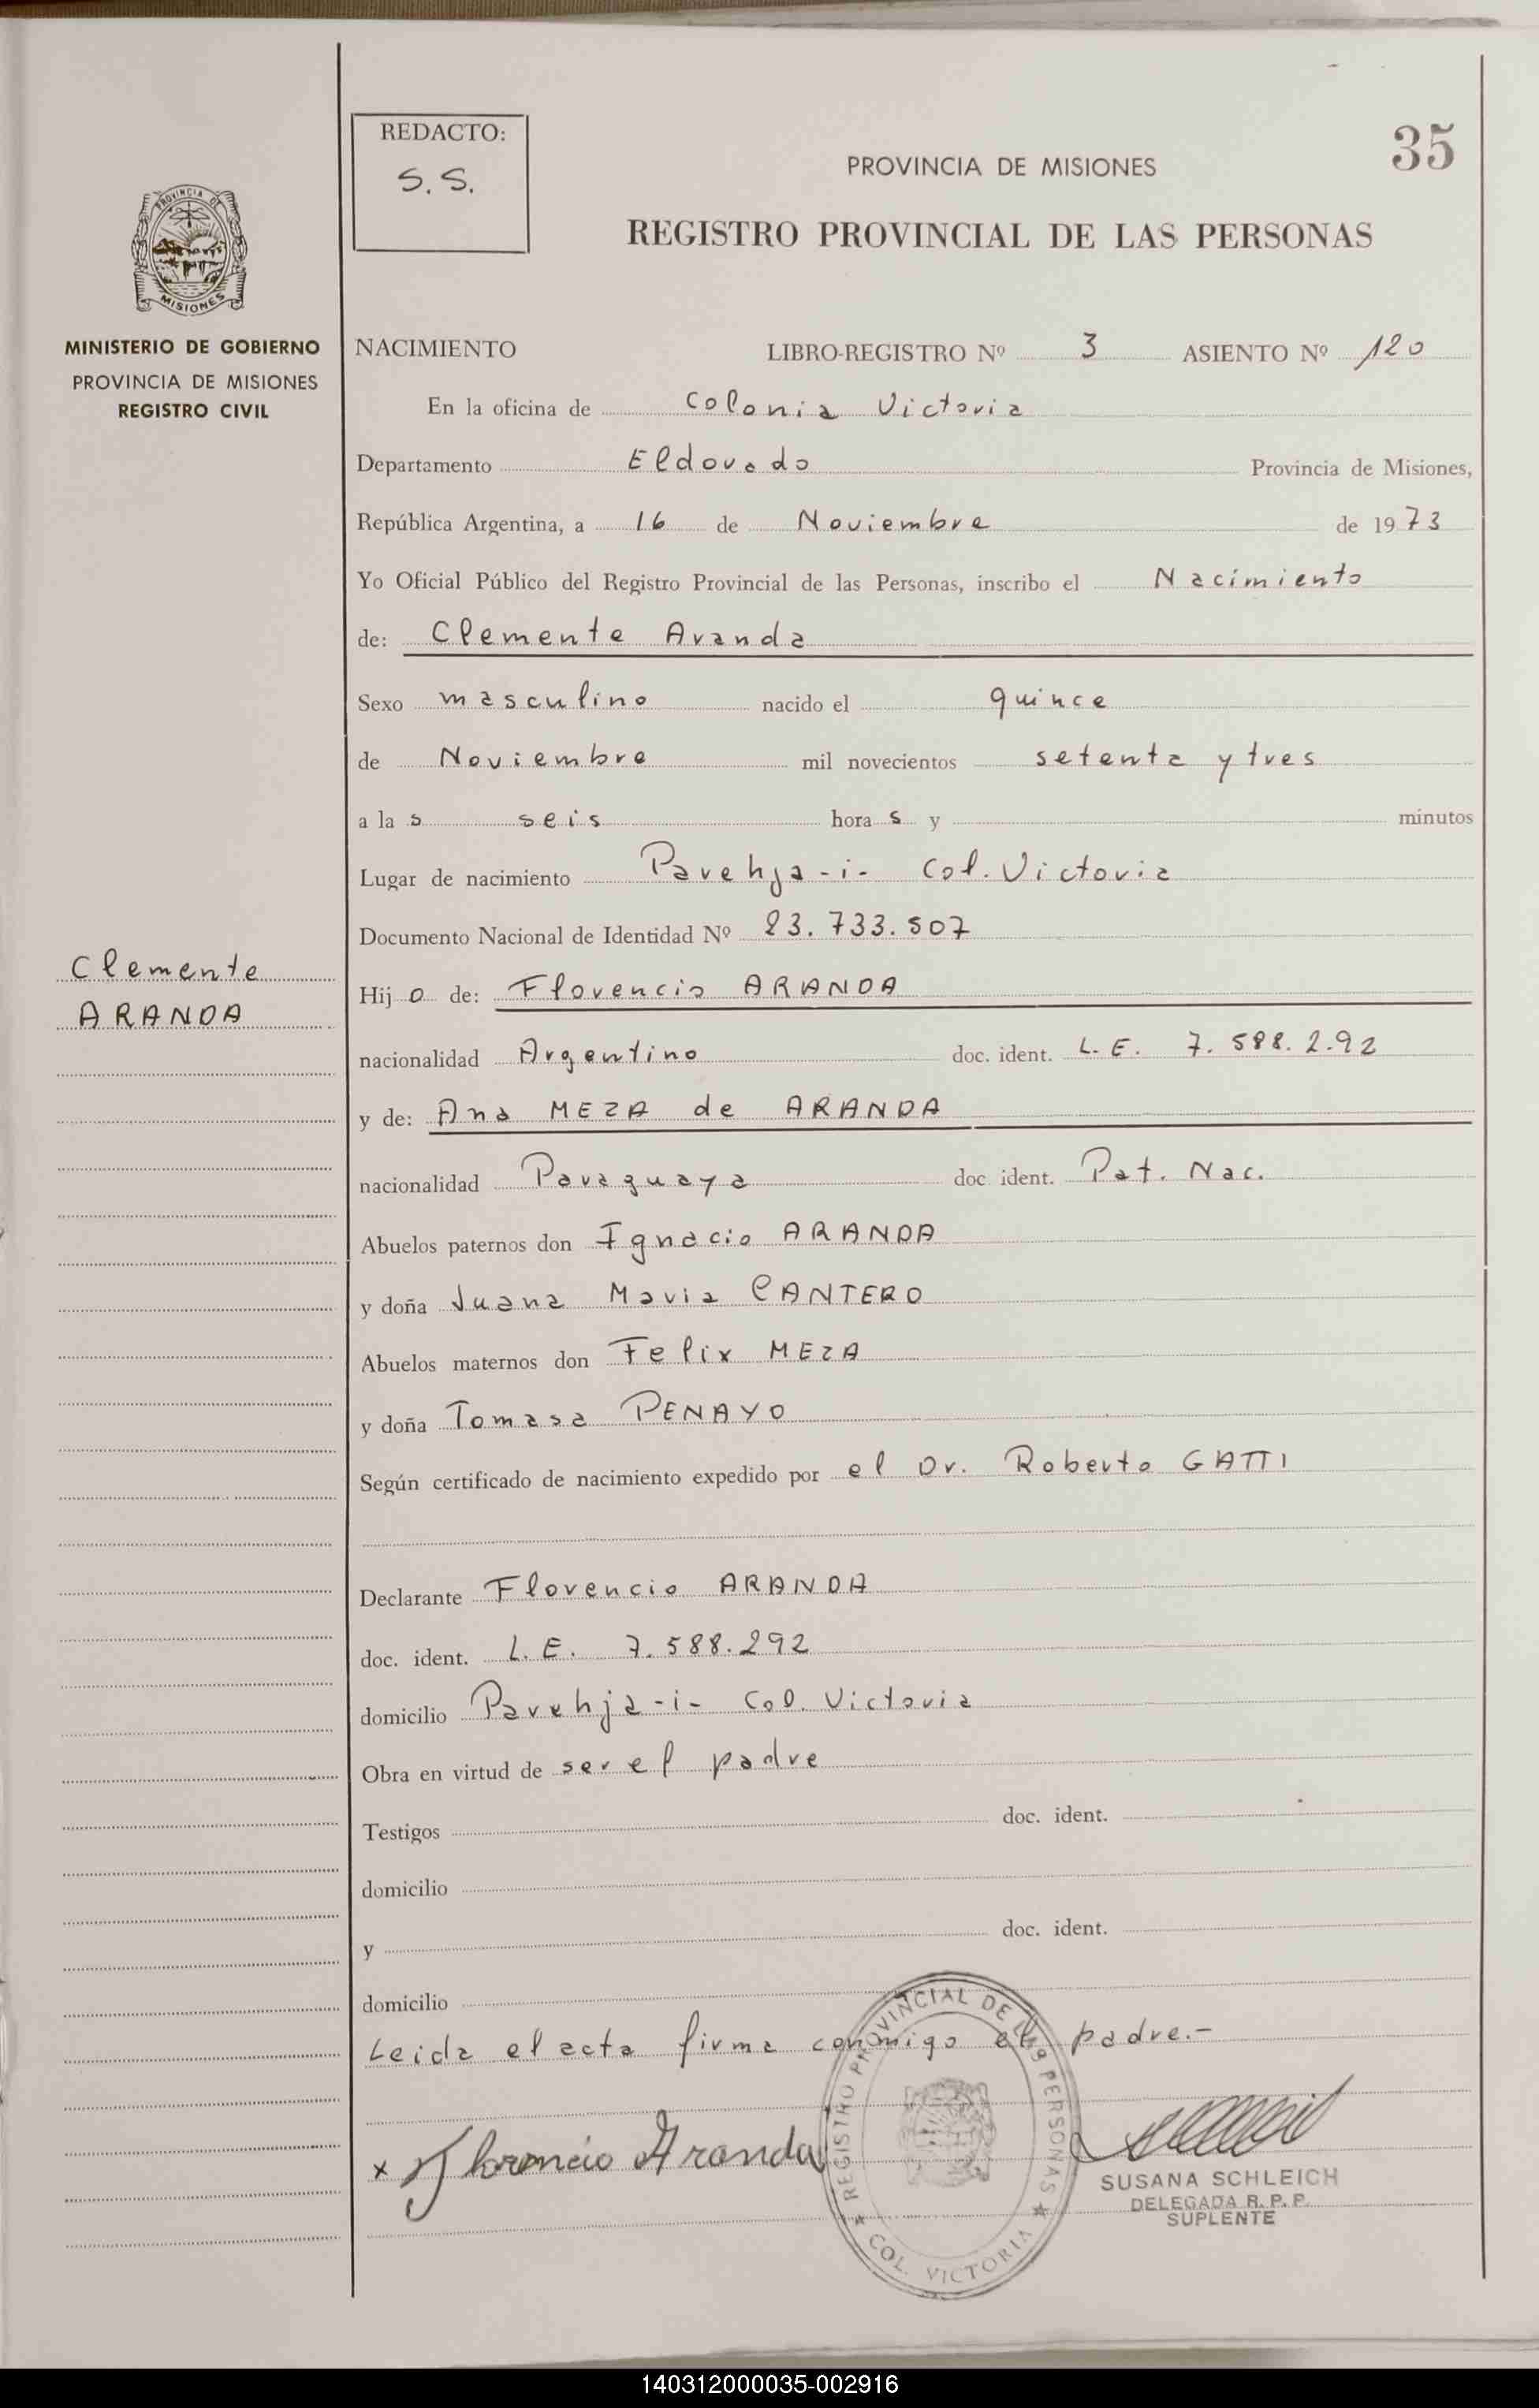 REDACTO:
S. S.
35
PROVINCIA DE MISIONES
REGISTRO PROVINCIAL DE LAS PERSONAS
PROVINCIA DE
MISIONES
MINISTERIO DE GOBIERNO
PROVINCIA DE MISIONES
REGISTRO CIVIL
NACIMIENTO LIBRO-REGISTRO Nº 3 ASIENTO Nº 120
En la oficina de Colonia Victoria
Departamento Eldorado Provincia de Misiones,
República Argentina, a 16 de Noviembre de 1973
Yo Oficial Público del Registro Provincial de las Personas, inscribo el Nacimiento
de: Clemente Aranda
Sexo masculino nacido el quince
de Noviembre mil novecientos setenta y tres
a la s seis hora s y minutos
Lugar de nacimiento Parehja-i- Col. Victoria
Documento Nacional de Identidad Nº 23.733.507
Clemente
ARANDA
Hij o de: Florencio ARANDA
nacionalidad Argentino doc. ident. L. E. 7. 588. 292
y de: Ana MEZA de ARANDA
nacionalidad Paraguaya doc ident. Pat. Nac.
Abuelos paternos don Ignacio ARANDA
y doña Juana Maria CANTERO
Abuelos maternos don Felix MEZA
y doña Tomasa PENAYO
Según certificado de nacimiento expedido por el Dr. Roberto GATTI
Declarante Florencio ARANDA
doc. ident. L. E. 7. 588. 292
domicilio Parehja-i- Col. Victoria
Obra en virtud de ser el padre
Testigos doc. ident.
domicilio
y doc. ident.
domicilio
Leida el acta firma conmigo el padre.-
x Florencio Aranda
REGISTRO PROVINCIAL DE LAS PERSONAS
COL. VICTORIA
SUSANA SCHLEICH
DELEGADA R. P. P.
SUPLENTE
140312000035-002916